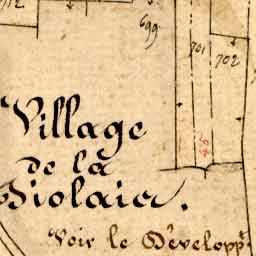 712
699
701
702
Village
de la
Violaie.
Voir le Développ.t